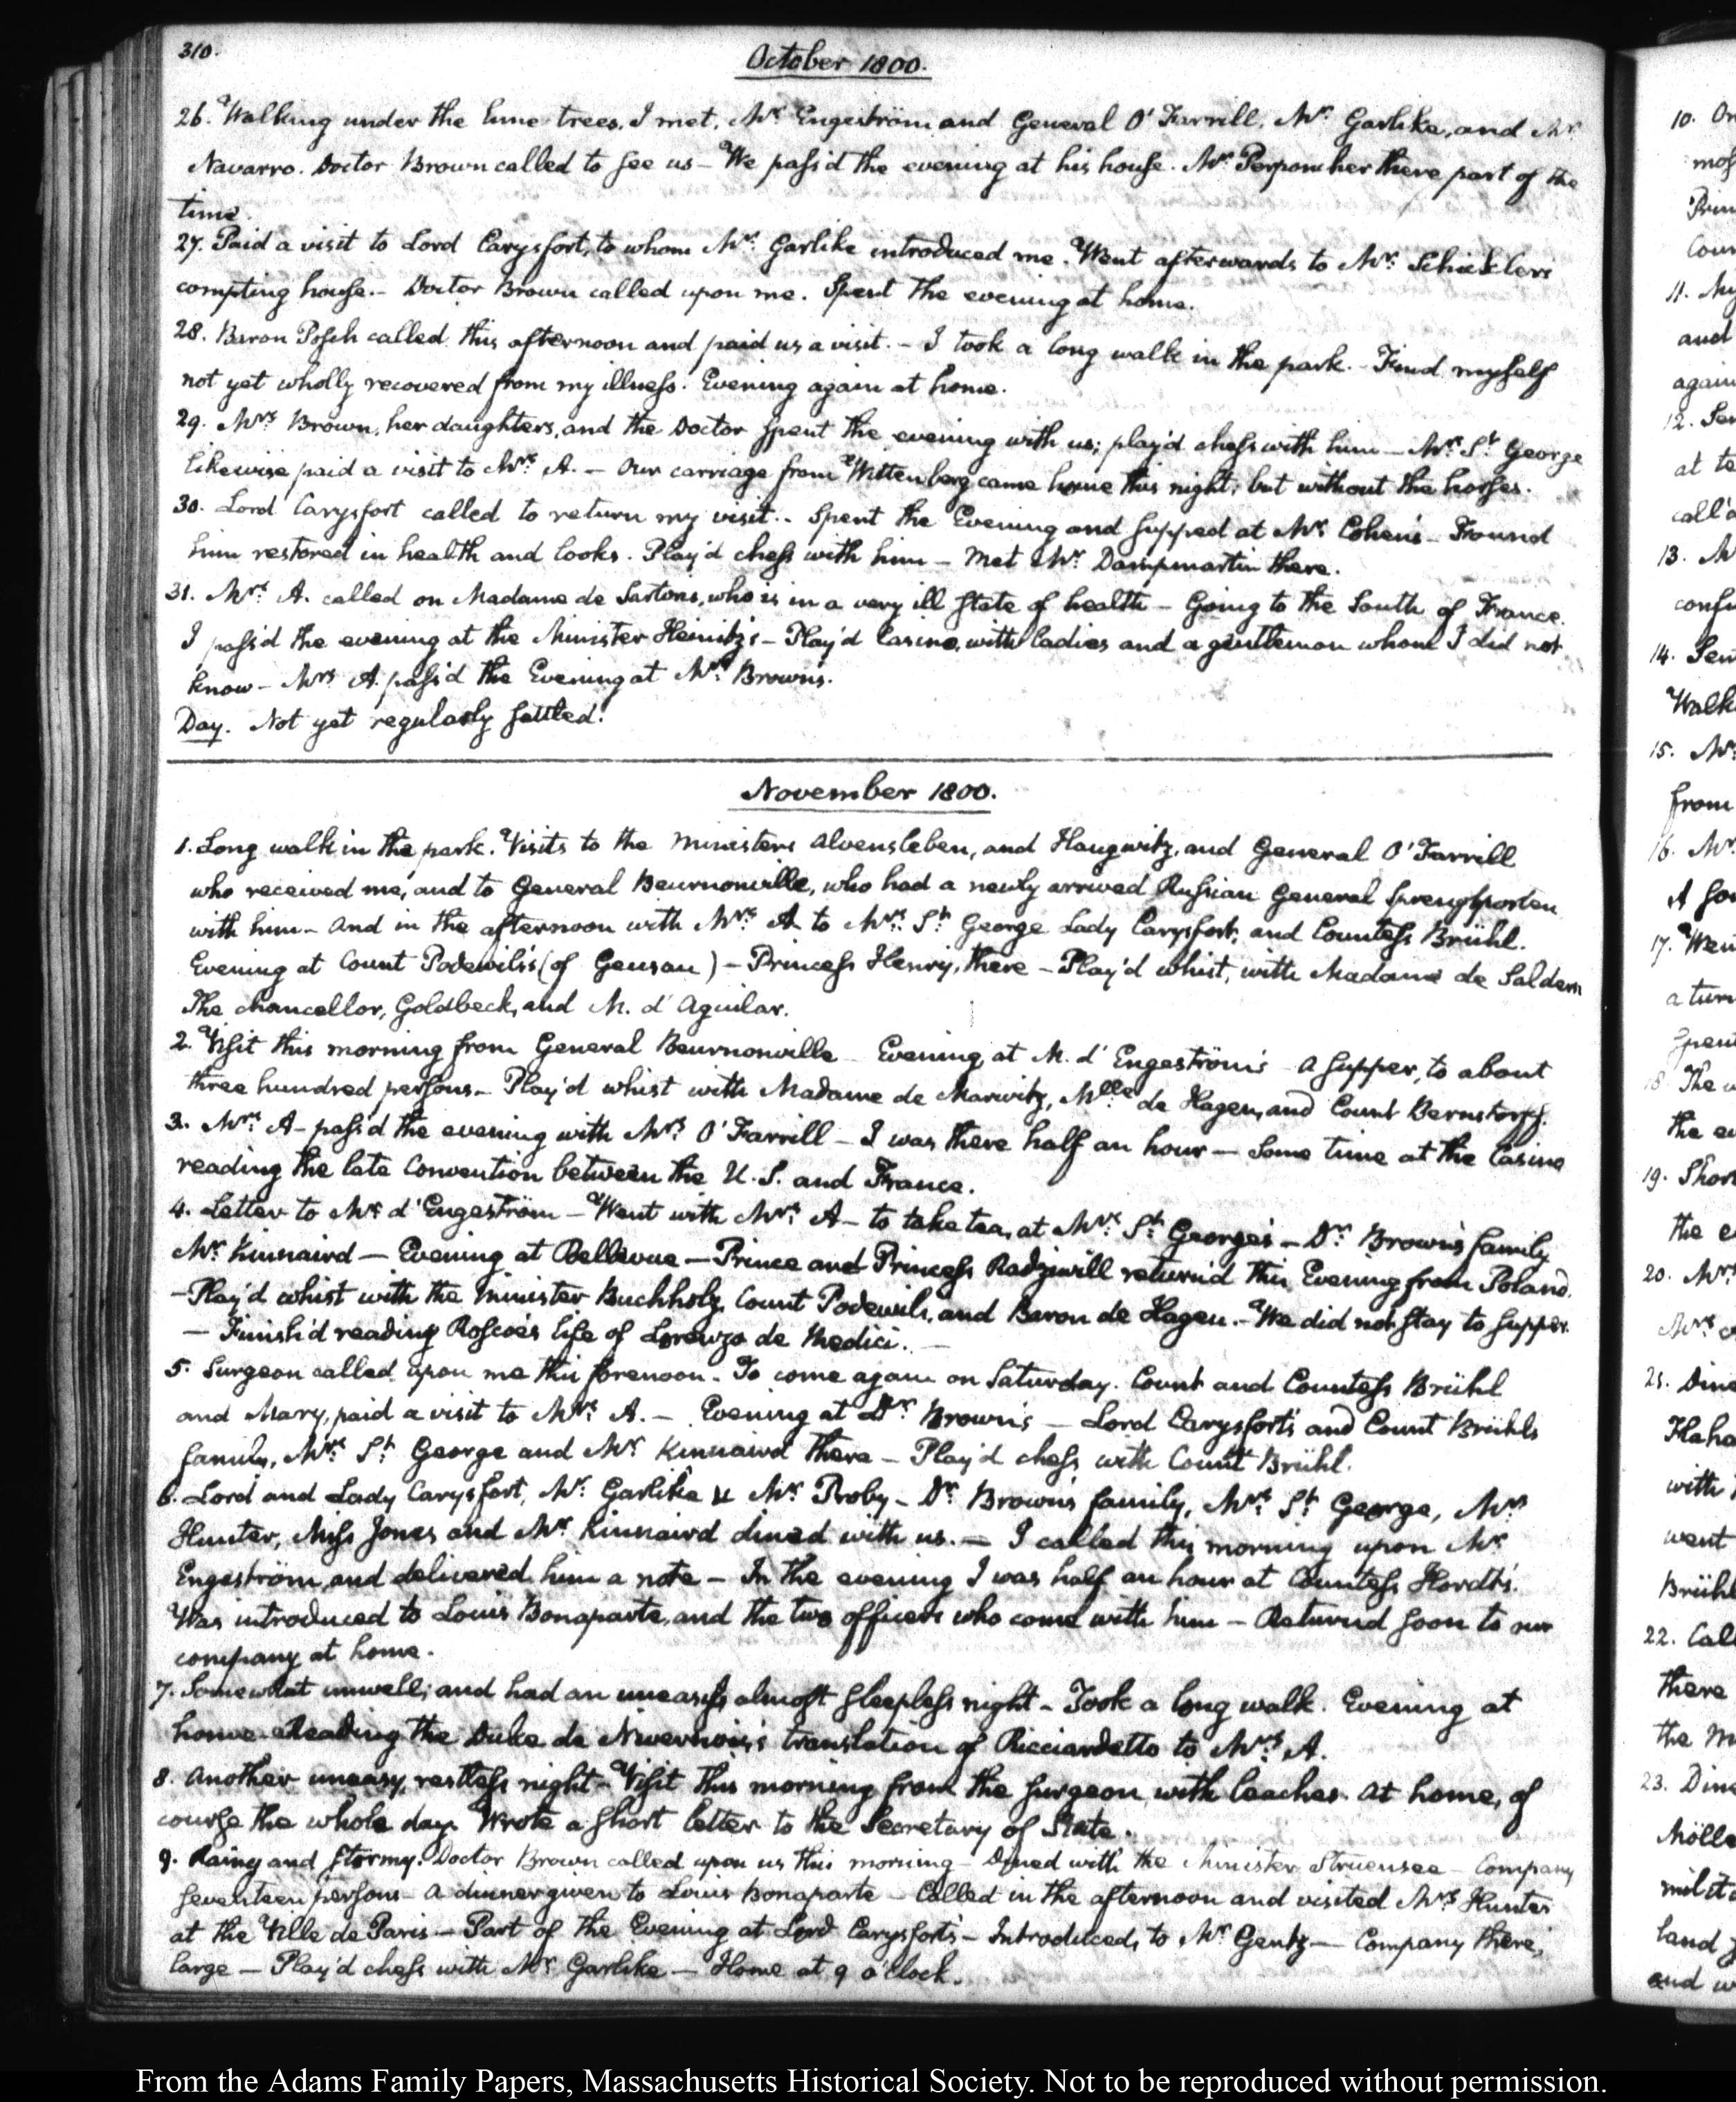 310.
October 1800.
26. Walking under the lime trees, I met, Mr. Engeström and General O'Farrill, Mr. Garlike, and Mr
Navarro. Doctor Brown called to see us – We pass'd the evening at his house. Mr. Perponcher there part of the
time.
27. Paid a visit to Lord Carysfort, to whom Mr. Garlike introduced me. Went afterwards to Mr. Schicklers
compting house. – Doctor Brown called upon me. Spent the evening at home.
28. Baron Posch called this afternoon and paid us a visit. – I took a long walk in the park. – Find myself
not yet wholly recovered from my illness. Evening again at home.
29. Mrs. Brown, her daughters, and the Doctor spent the evening with us; play'd chess with him – Mrs. St. George
likewise paid a visit to Mrs. A. – Our carriage from Wittenberg came home this night; but without the horses.
30. Lord Carysfort called to return my visit. – Spent the Evening and supped at Mr. Cohen's – Found
him restored in health and looks. Play'd chess with him – Met Mr. Dampmartin there.
31. Mrs. A. called on Madame de Sartoris, who is in a very ill state of health – Going to the South of France.
I pass'd the evening at the Minister Heinitz's – Play'd Casino, with ladies and a gentleman whom I did not
know – Mrs. A. pass'd the Evening at Mrs. Browns.
Day. Not yet regularly settled.
November 1800.
1. Long walk in the park. Visits to the Ministers Alvensleben, and Haugwitz, and General O'Farrill
who received me, and to General Beurnonville, who had a newly arrived Russian General Sprengporten
with him – And in the afternoon with Mrs. A to Mrs. St. George Lady Carysfort, and Countess Brühl.
Evening at Count Podewils's (of Gusau) – Princess Henry, there – Play'd whist, with Madame de Saldern
The Chancellor, Goldbeck, and M. d'Aguilar.
2. Visit this morning from General Beurnonville – Evening at M. d'Engeström's – A supper, to about
three hundred persons – Play'd whist with Madame de Marwitz, Mlle de Hagen, and Count Bernstorff.
3. Mrs. A – pass'd the evening with Mrs. O'Farrill – I was there half an hour – Some time at the Casino
reading the late Convention between the U.S. and France.
4. Letter to Mr. d'Engeström – Went with Mrs. A – to take tea, at Mrs. St. George's – Dr. Brown's family
Mr. Kinnaird – Evening at Bellevue – Prince and Princess Radziwill return'd this Evening from Poland.
– Play'd whist with the Minister Buchholz, Count Podewils, and Baron de Hagen. – We did not stay to supper.
– Finish'd reading Roscoe's life of Lorenzo de Medici. –
5. Surgeon called upon me this forenoon – To come again on Saturday. Count and Countess Brühl
and Mary, paid a visit to Mrs. A. – Evening at Dr. Brown's – Lord Carysfort's and Count Brühls
family, Mrs. St. George and Mr. Kinnaird there – Play'd chess with Count Brühl.
6. Lord and Lady Carysfort, Mr. Garlike & Mr. Proby – Dr. Brown's family, Mrs. St. George, Mrs
Hunter, Miss Jones and Mr. Kinnaird dined with us. – I called this morning upon Mr.
Engeström, and delivered him a note – In the evening I was half an hour at Countess Hordt's.
Was introduced to Louis Bonaparte, and the two officers who come with him – Return'd soon to our
company at home.
7. Somewhat unwell, and had an uneasy almost sleepless night – Took a long walk. Evening at
home. Reading the Duke de Nivernois's translation of Ricciardetto to Mrs. A.
8. Another uneasy, restless night – Visit this morning from the surgeon with leaches. At home, of
course the whole day. Wrote a short letter to the Secretary of State.
9. Rainy and stormy. Doctor Brown called upon us this morning – Dined with the Minister Struensee – Company
seventeen persons – A dinner given to Louis Bonaparte – Called in the afternoon and visited Mrs. Hunter
at the Ville de Paris – Part of the Evening at Lord Carysfort's – Introduced, to Mr. Gentz – Company there,
large – Play'd chess with Mr. Garlike – Home at 9 o'clock.
10.
11.
and
again
12.
at te
call'd
13.
14.
15.
from
16.
17.
a turn
18. The
the
19.
the
20. Mrs.
21.
with
went
Brühl
22.
there
the
23.
land
and
From the Adams Family Papers, Massachusetts Historical Society. Not to be reproduced without permission.